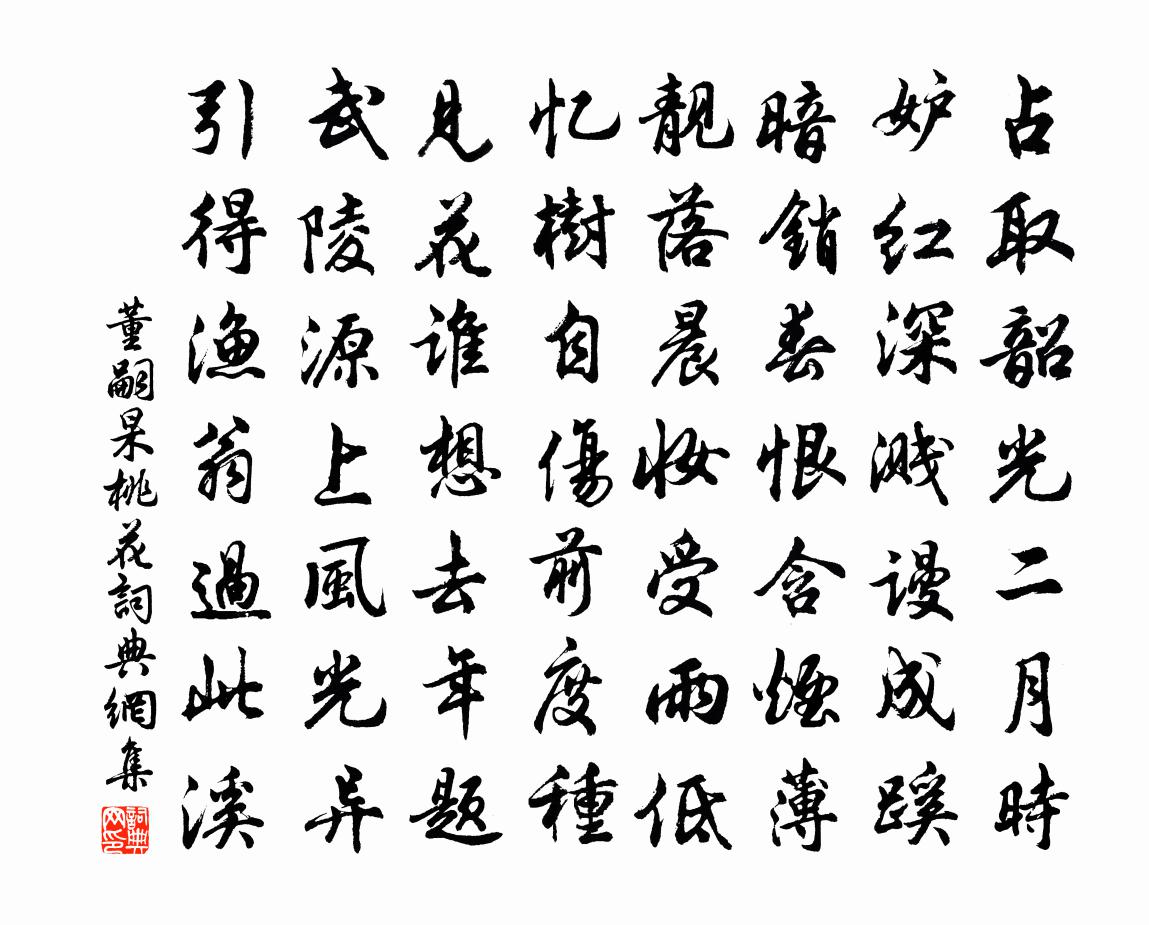 占取韶光二月時
妒红深溅谩成蹊
暗銷春恨含煙薄
靚落晨妝受雨低
忆樹自傷前度種
見花誰想去年题
武陵源上風光异
引得漁翁過此溪
董嗣杲桃花詞典網集
詞典网印